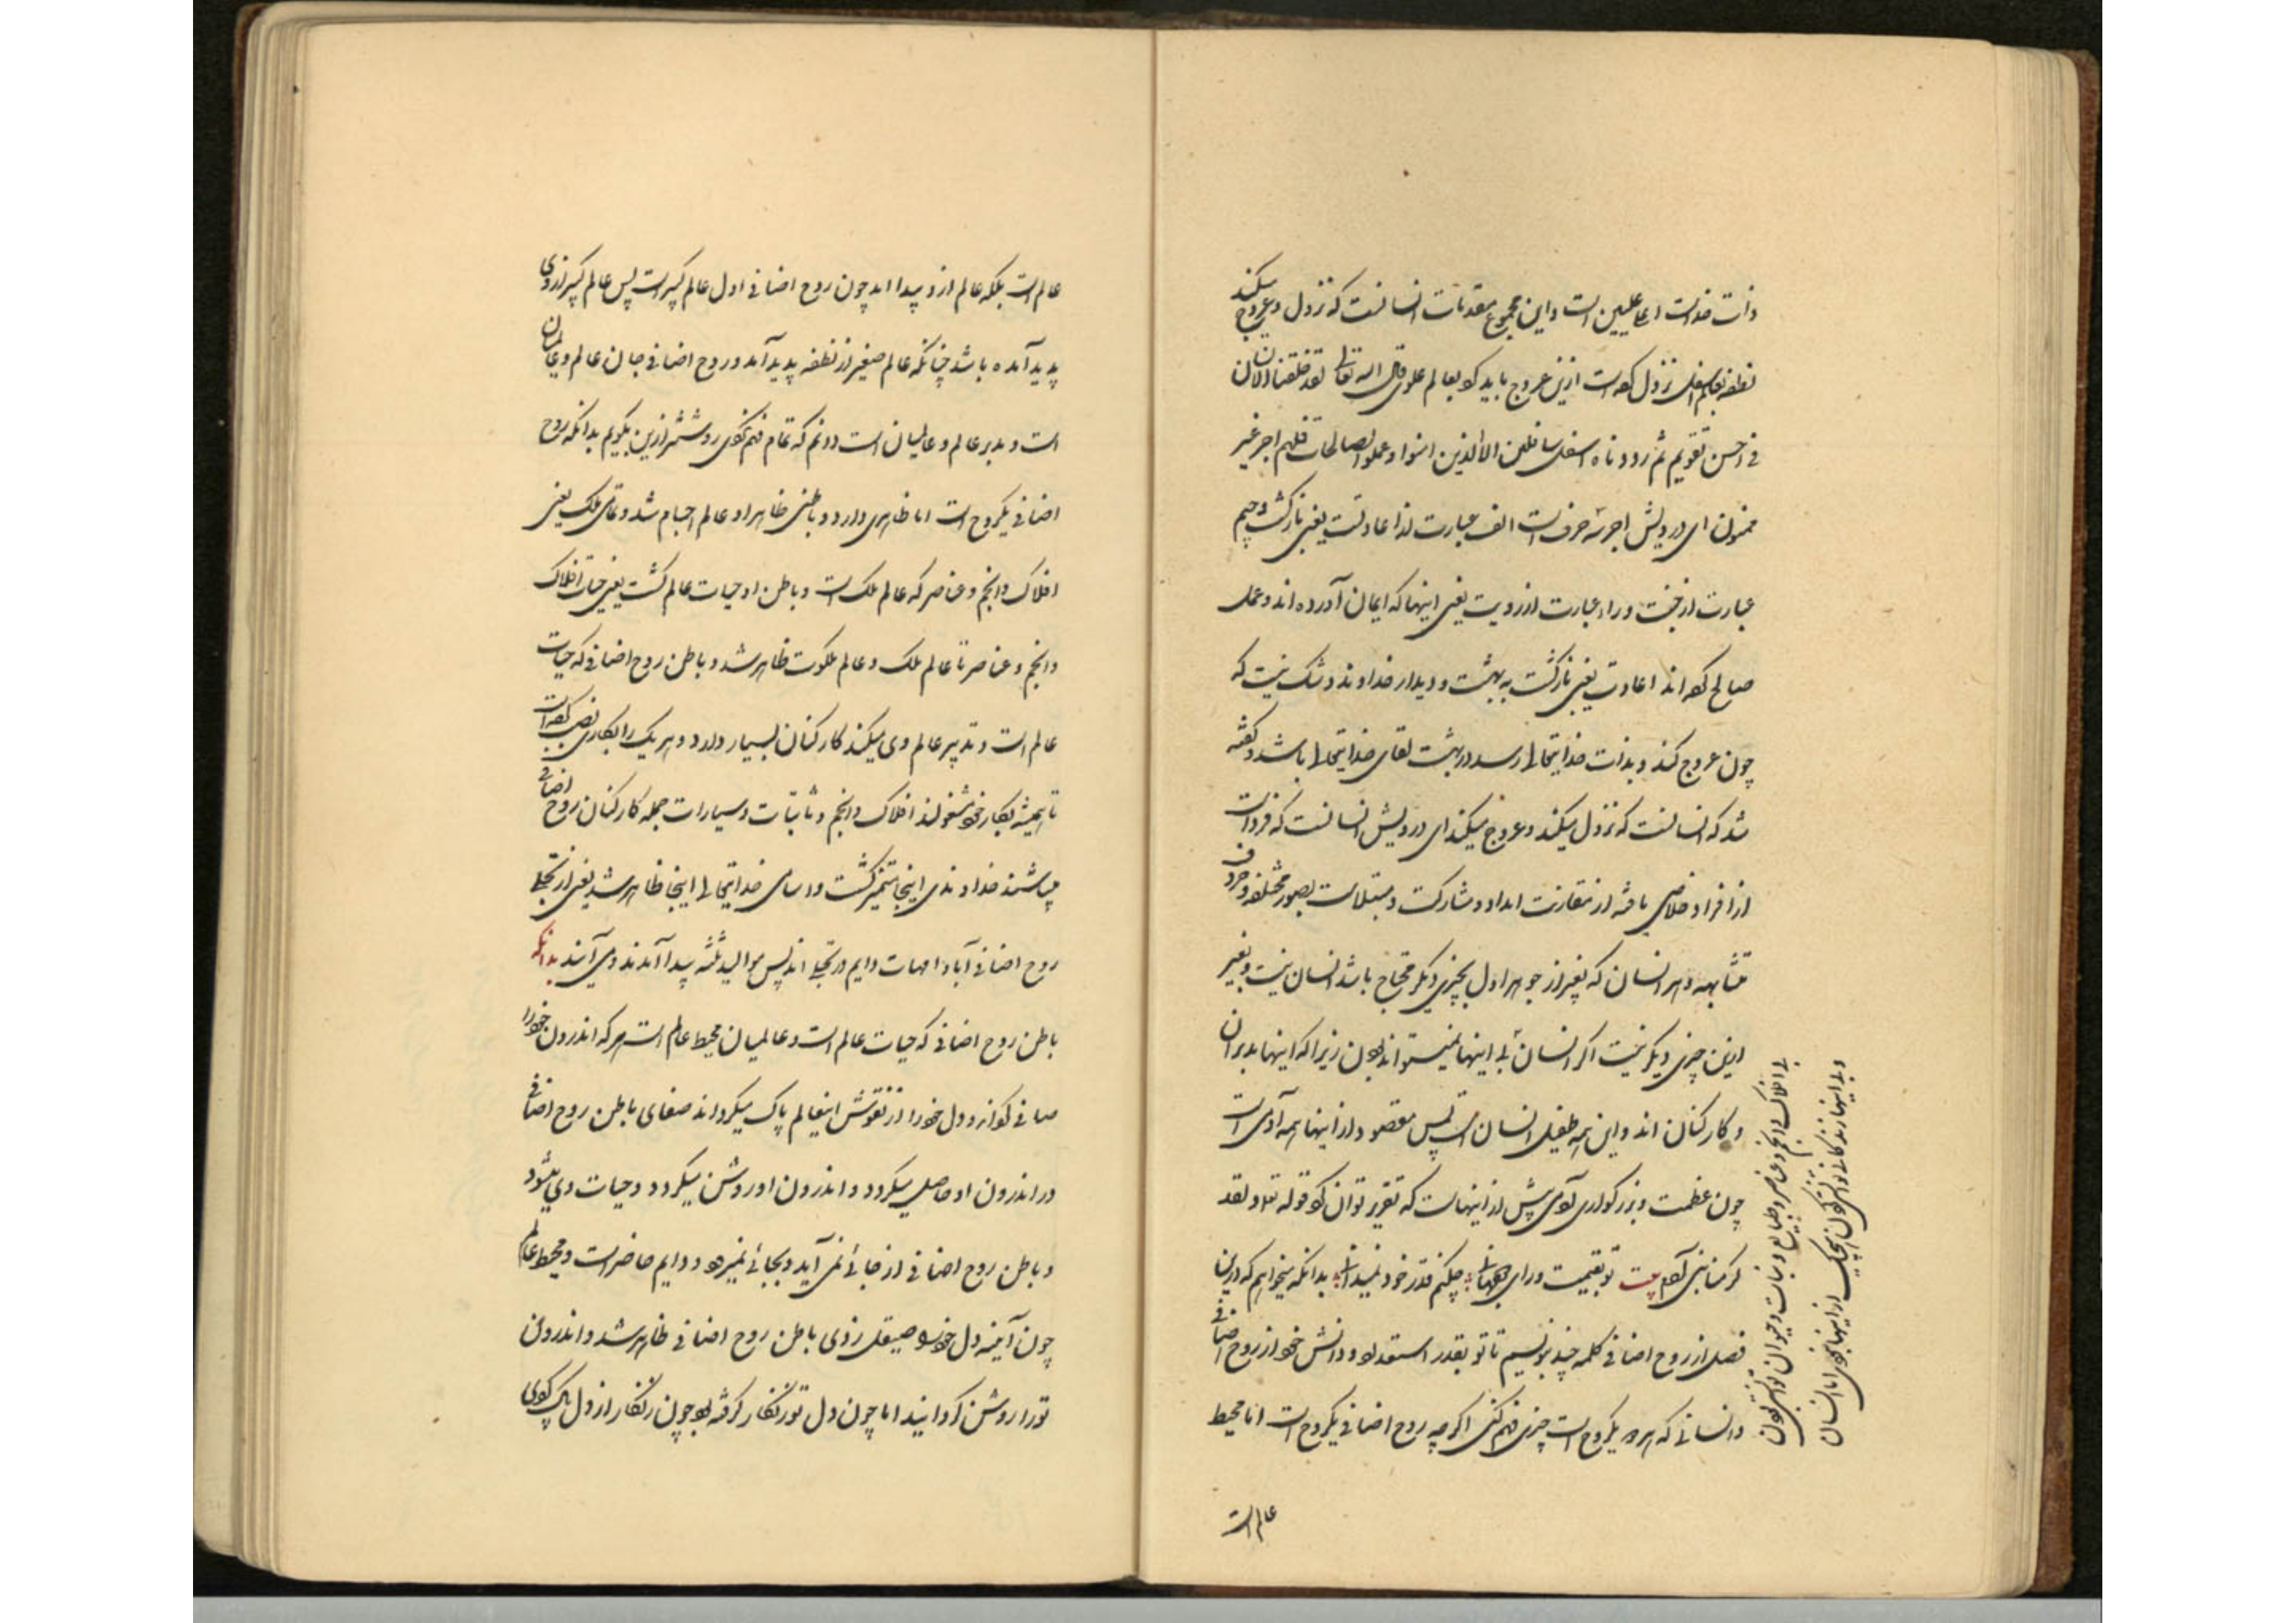 ذات خداست اعلا علیین است و این مجموع مقدمات انسانست که نزول و عروج میکند
نطفه بعالم سفلی نزول کرده است ازین عروج باید کرد بعالم علوی قال الله تعالی لقد خلقنا الانسان
فی احسن تقویم ثم رددناه اسفل سافلین الا الذین امنوا و عملوا الصالحات فلهم اجر غیر
ممنون ای درویش اجر سه حرف است الف عبارت از اعادتست یعنی بازگشت و جیم
عبارت از جنت و راء عبارت از رویت یعنی اینها که ایمان آورده اند و عمل
صالح کرده اند اعادت یعنی بازگشت به بهشت و دیدار خداوند و شک نیست که
چون عروج کند و بذات خدایتعالی رسد در بهشت لقای خدایتعالی باشد و گفته
شد که انسانست که نزول میکند و عروج میکند ای درویش انسانست که فرد است
از افراد خلاصی یافته از مقارنت اعداد و مشارکت و مبتلاست بصور مختلفه و حروف
متشابهه و هر انسان که بغیر از جوهر اول بچیزی دیگر محتاج باشد انسان نیست و بغیر
ازین چیزی دیگر نیست اگر انسان بی اینها نمیتواند بودن زیرا که اینها مدبران
و کارکنان اند و این همه طفیل انسان است پس مقصود از اینها همه آدمی است
چون عظمت و بزرگواری آدمی بیش از اینهاست که تقریر توان کرد قوله تعالی و لقد
کرمنا بنی آدم بیت تو بقیمت ورای دو جهانی چکنم قدر خود نمیدانی بدانکه میخواهم که درین
فصل از روح اضافی کلمه چند بنویسم تا تو بقدر استعداد و دانش خود از روح اضافی
و انسانی که هر دو یک روح است چیزی فهم کنی اگرچه روح اضافی یکروح است اما محیط
بی افلاک و انجم و عناصر و طبایع و نبات و حیوان نتواند بودن
و بی اینها زندگانی نتواند کردن هیچیک از اینها نبودی اما انسان
عالم است
عالم است بلکه عالم ازو پیدا آمد چون روح اضافی اول عالم کبیر است پس عالم کبیر از وی
پدید آمده باشد چنانکه عالم صغیر از نطفه پدید آمد و روح اضافی جان عالم و عالمیان
است و مدبر عالم و عالمیان است دانم که تمام فهم نکردی روشنتر ازین بگویم بدانکه روح
اضافی یکروح است اما ظاهری دارد و باطنی ظاهر او عالم اجسام شد و تمامی ملک یعنی
افلاک و انجم و عناصر که عالم ملک است و باطن او حیات عالم گشت یعنی حیات افلاک
و انجم و عناصر تا عالم ملک و عالم ملکوت ظاهر شد و باطن روح اضافی که حیات
عالم است و تدبیر عالم وی میکند کارکنان بسیار دارد و هر یک را بکاری نصب کرده است
تا همیشه بکار خود مشغولند افلاک و انجم و ثابتات و سیارات جمله کارکنان روح اضافی
میباشند خداوندی اینجا متمیز گشت و اسامی خدایتعالی اینجا ظاهر شد یعنی از تجلی
روح اضافی آباء و امهات دایم در تجلی اند پس موالید ثلثه پیدا آمدند و می آیند بدانکه
باطن روح اضافی که حیات عالم است و عالمیان محیط عالم است هر که اندرون خود را
صافی گرداند و دل خود را از نقوش اینعالم پاک میگرداند صفای باطن روح اضافی
در اندرون او حاصل میگردد و اندرون او روشن میگردد و حیات وی میشود
و باطن روح اضافی از جائی نمی آید و بجائی نمیرود و دایم حاضر است و محیط عالم
چون آینه دل خود را صیقل زدی باطن روح اضافی ظاهر شد و اندرون
تو را روشن گردانید اما چون دل تو زنگار گرفته بود چون زنگار از دل پاک کردی